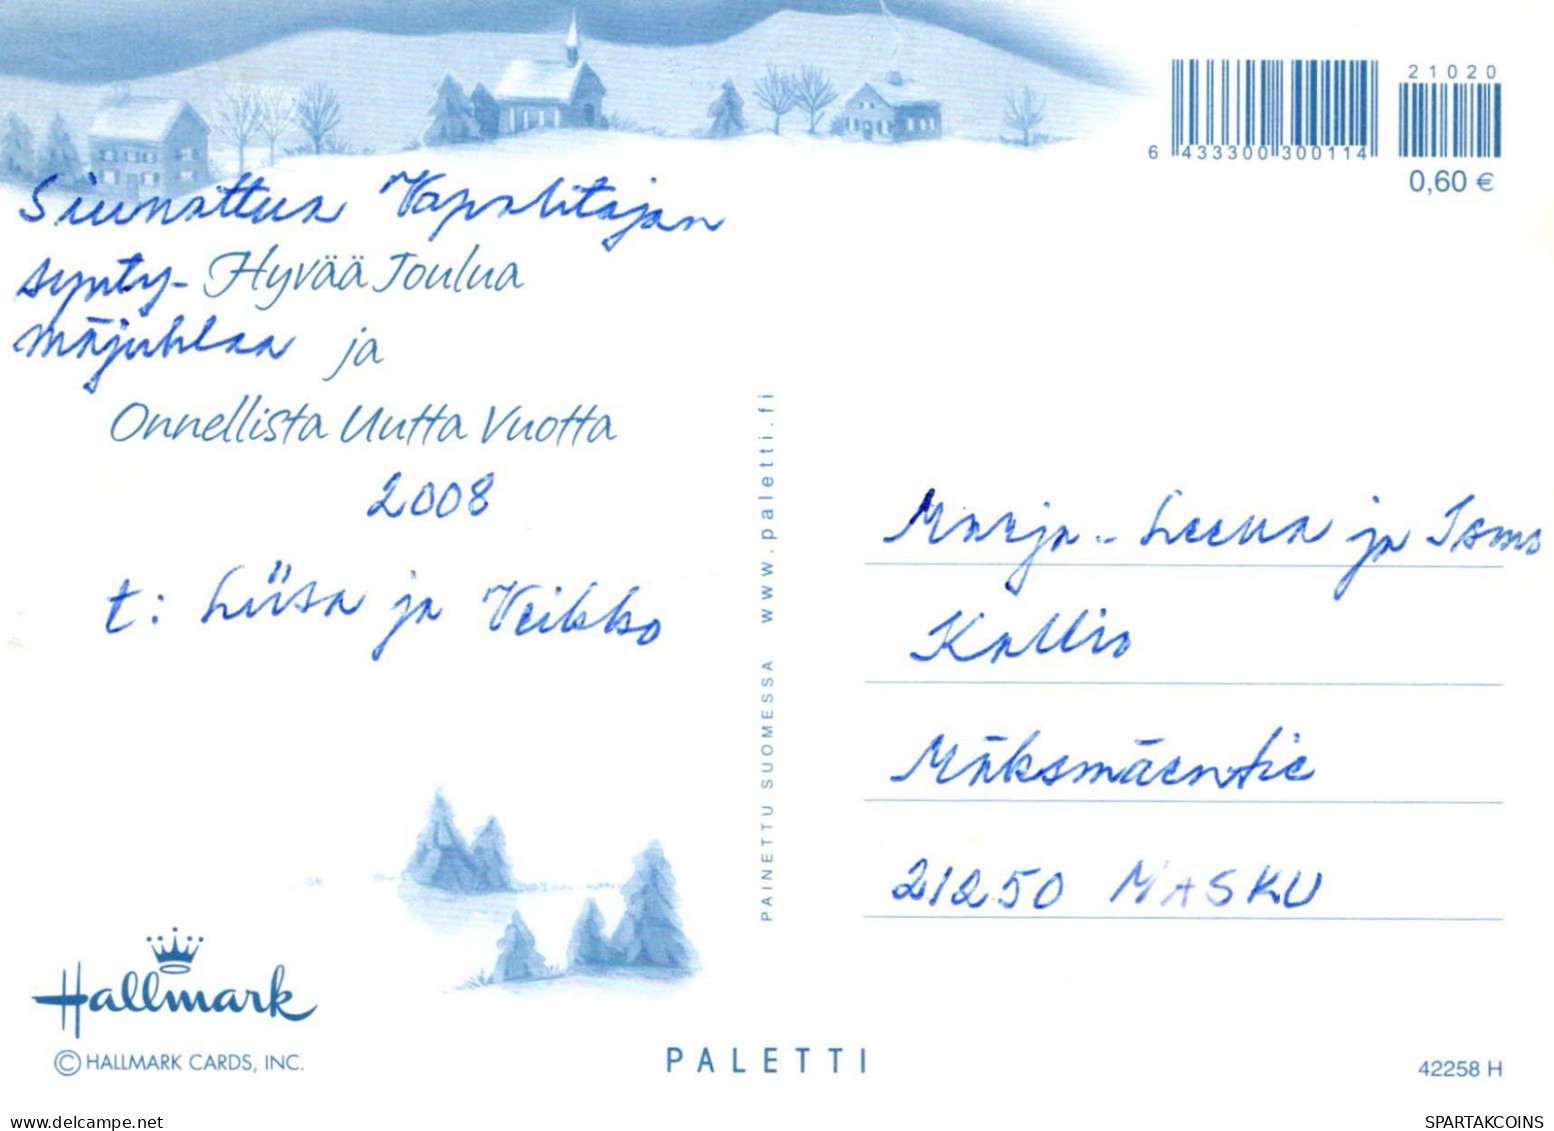 21020
6 433300 300114
0,60 €
Siunattua Vapahtajan
synty- Hyvää Joulua
mäjuhlaa ja
Onnellista Uutta Vuotta
2008
t: Liisa ja Veikko
PAINETTU SUOMESSA www.paletti.fi
Marja-Leena ja Ismo
Kallio
Mäksmäentie
21250 MASKU
Hallmark
© HALLMARK CARDS, INC.
PALETTI
42258 H
www.delcampe.net
SPARTAKCOINS